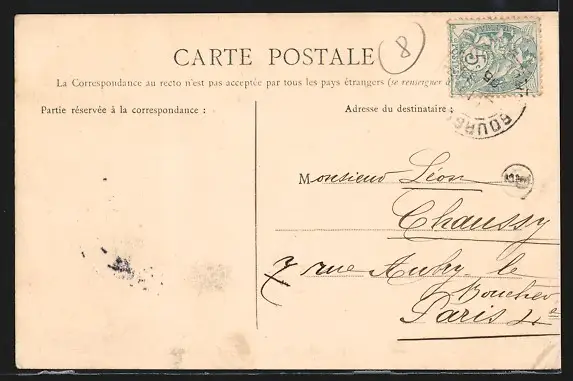 CARTE POSTALE
8
La Correspondance au recto n'est pas acceptée par tous les pays étrangers (se renseigner
Partie réservée à la correspondance :
Adresse du destinataire :
BOURG
5
Monsieur Léon
Chaussy
7 rue Aubry le
Boucher
Paris 4e